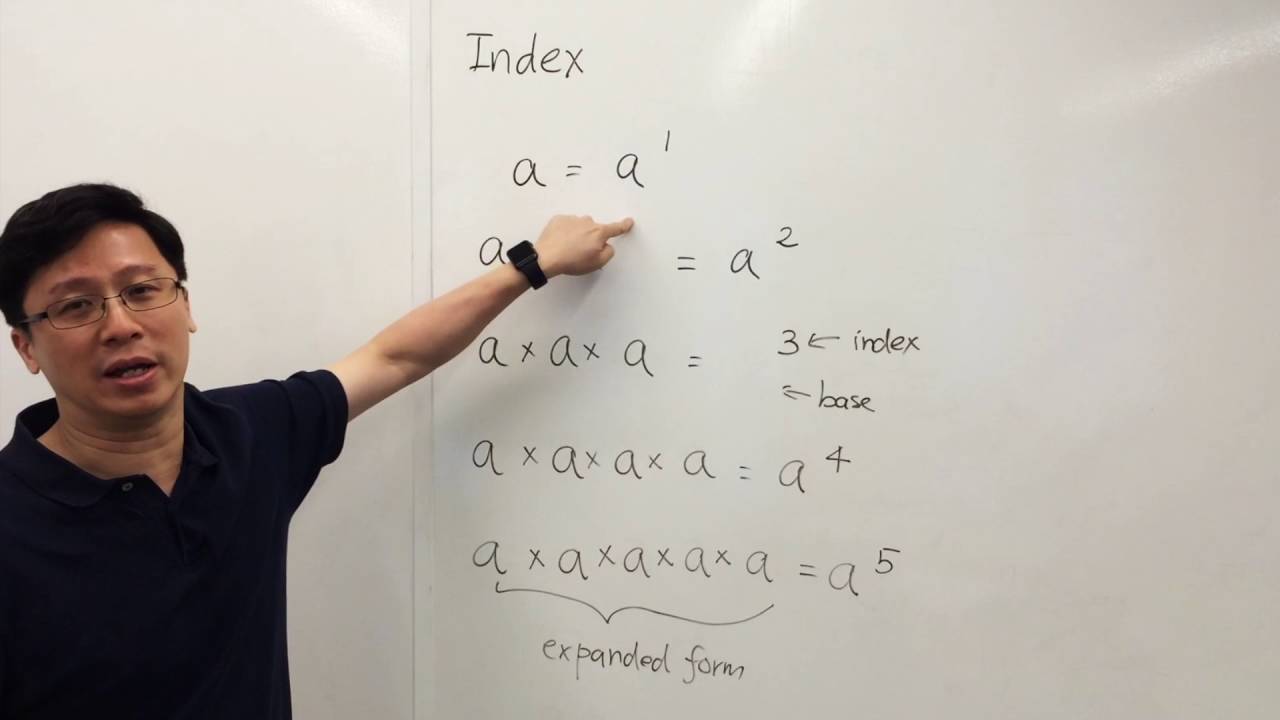 Index
a = a¹
a = a²
a × a × a = 3 ← index
← base
a × a × a × a = a⁴
a × a × a × a × a = a⁵
expanded form